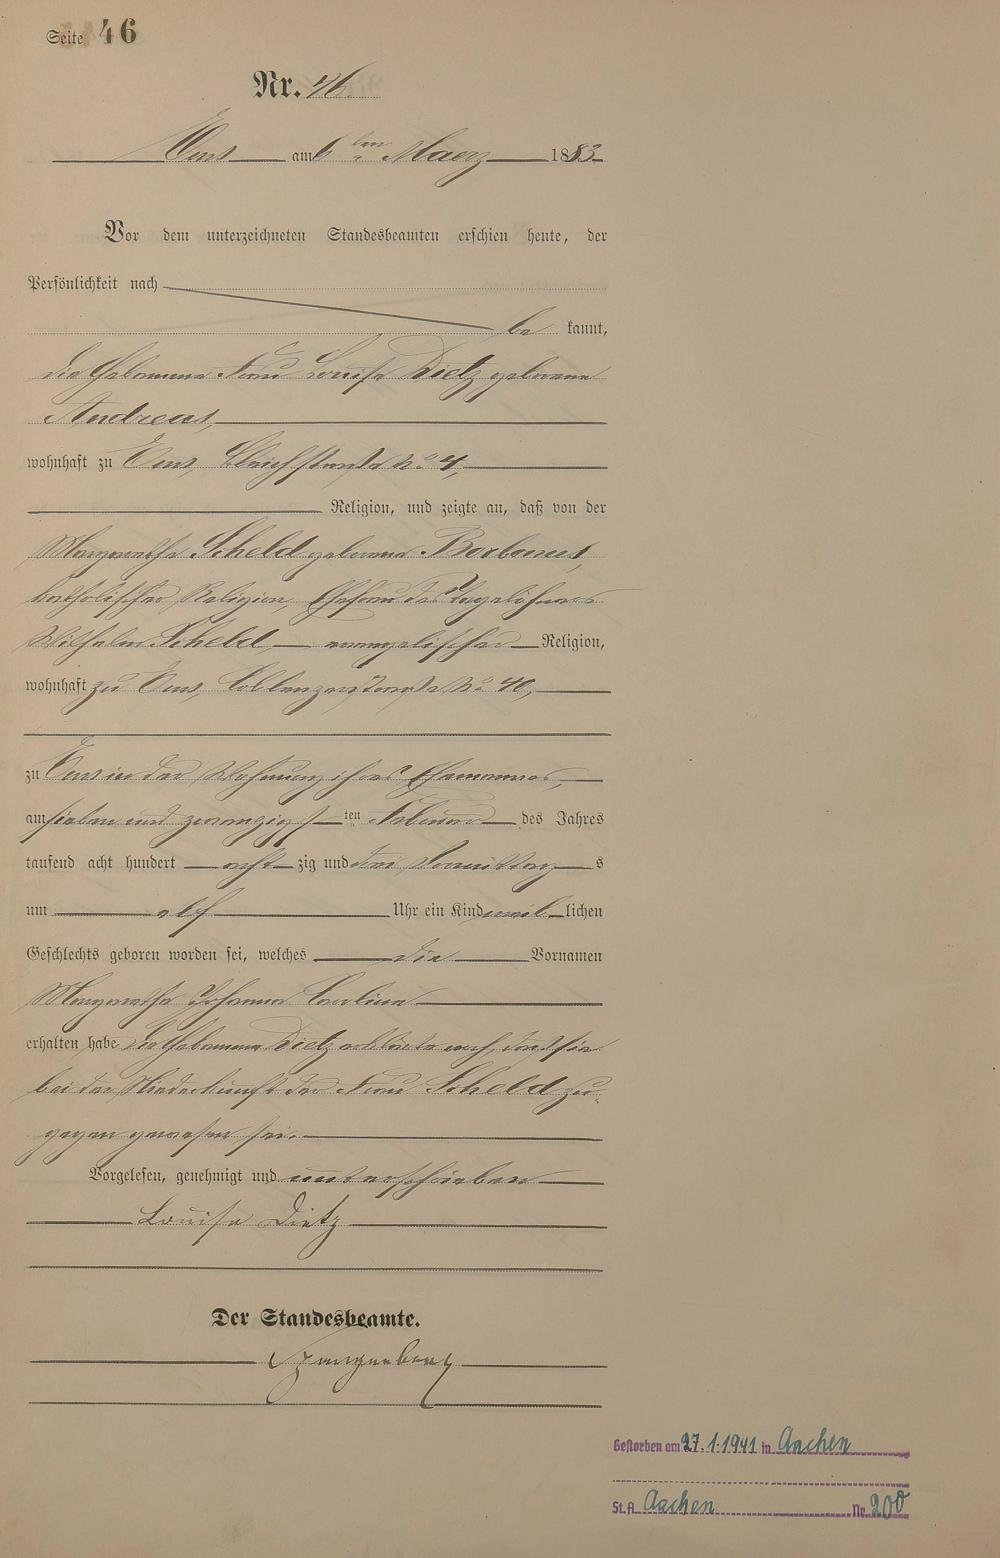 Seite 46
Nr. 46.
Ems am 6ten Maerz 1883
Vor dem unterzeichneten Standesbeamten erschien heute, der
Persönlichkeit nach
be kannt,
die Hebamme Frau Louise Dietz geborene
Andreas,
wohnhaft zu Ems, Bleichstraße No 4,
Religion, und zeigte an, daß von der
Margarethe Scheld geborene Borbonus,
katholischer Religion, Ehefrau des Tagelöhners
Wilhelm Scheld evangelischer Religion,
wohnhaft zu Ems, Coblenzerstraße No 40,
zu Ems in der Wohnung ihres Ehemannes,
am sieben und zwanzigsten Februar des Jahres
tausend acht hundert achtzig und drei Vormittags
um elf Uhr ein Kind weiblichen
Geschlechts geboren worden sei, welches die Vornamen
Margarethe Johanna Carlina
erhalten habe Die Hebamme Dietz erklärte noch, daß sie
bei der Niederkunft der Frau Scheld zu-
gegen gewesen sei.
Vorgelesen, genehmigt und unterschrieben
Louise Dietz
Der Standesbeamte.
Spangenberg
Gestorben am 27.1.1941 in Aachen
St.A. Aachen Nr. 200